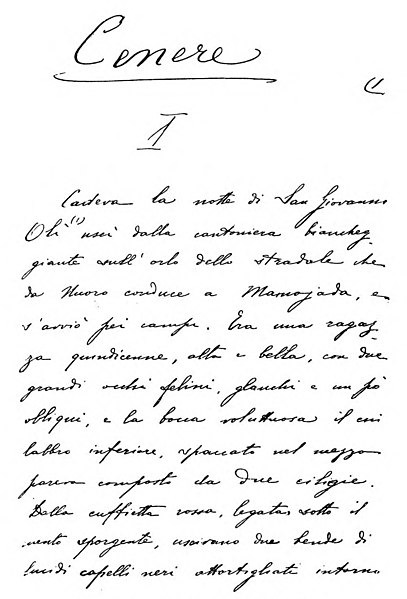 Cenere
(1
I
Cadeva la notte di San Giovanni
Olì (1) uscì dalla cantoniera biancheg
giante sull'orlo dello stradale che
da Nuoro conduce a Mamojada, e
s'avviò pei campi. Era una ragaz
za quindicenne, alta e bella, con due
grandi occhi felini, glauchi e un pò
obliqui, e la bocca voluttuosa il cui
labbro inferiore, spaccato nel mezzo
pareva composto da due ciliegie.
Dalla cuffietta rossa, legata sotto il
mento sporgente, uscivano due bende di
lucidi capelli neri attortigliati intorno